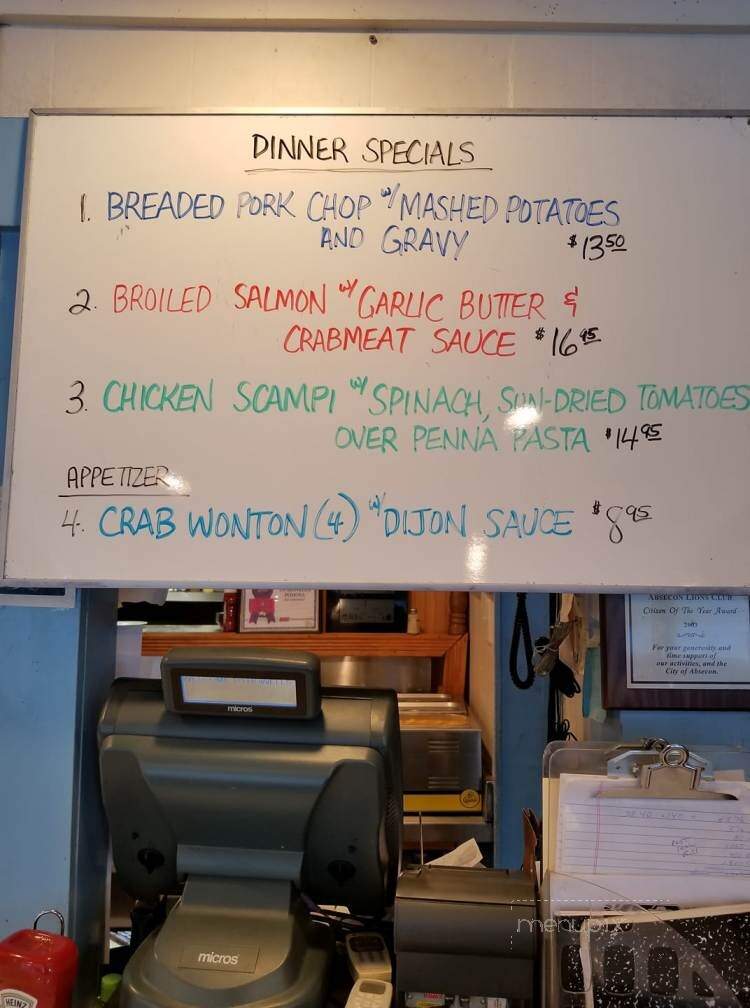 DINNER SPECIALS
1. BREADED PORK CHOP w/ MASHED POTATOES
AND GRAVY $13.50
2. BROILED SALMON w/ GARLIC BUTTER &
CRABMEAT SAUCE $16.95
3. CHICKEN SCAMPI w/ SPINACH, SUN-DRIED TOMATOES
OVER PENNA PASTA $14.95
APPETIZER
4. CRAB WONTON (4) w/ DIJON SAUCE $8.95
ABSECON LIONS CLUB
Citizen Of The Year Award
For your generosity and
time support of
our activities, and the
City of Absecon.
micros
micros
HEINZ
menupix